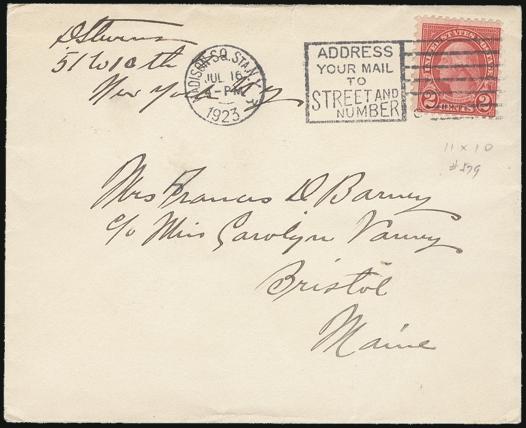 D Stevens
51 W 10th
New York N.Y.
MADISON SQ. STA. N.Y.
JUL 16
4-PM
1923
ADDRESS
YOUR MAIL
TO
STREET AND
NUMBER
UNITED STATES POSTAGE
2 CENTS 2
11 x 10
#579
Mrs Francis D Barney
c/o Miss Carolyn Varney
Bristol
Maine